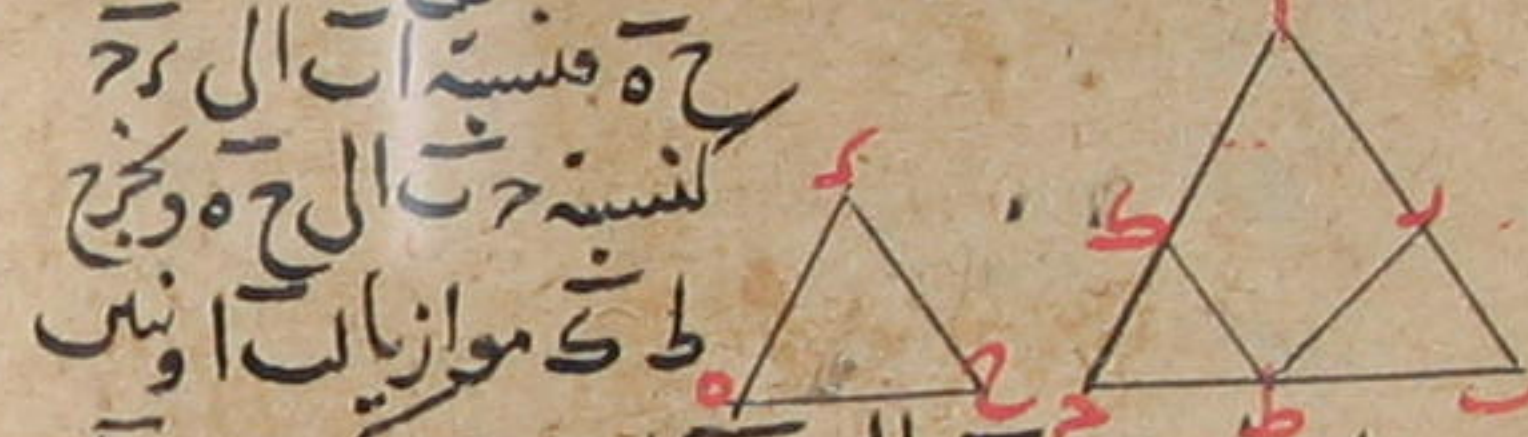 ح ه فنسبة ا ب الى د ح
كنسبة ح ب الى ح ه ونخرج
ط ك موازيا لب ا ونبين
ا
د
ك
ل
ه
ح
ح
ط
ب